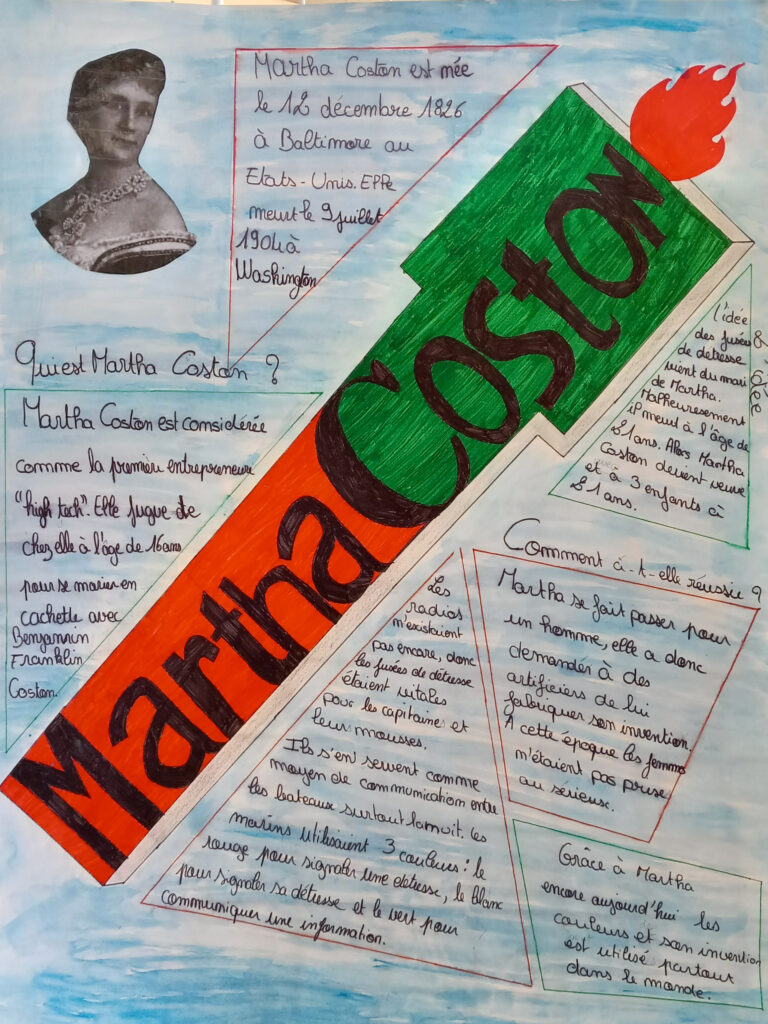 Martha Coston est née
le 12 décembre 1826
à Baltimore au
Etats-Unis. Elle
meurt le 9 juillet
1904 à
Washington
Martha Coston
Qui est Martha Coston ?
Martha Coston est considérée
comme la première entrepreneure
"high tech". Elle fugue de
chez elle à l'âge de 16 ans
pour se marier en
cachette avec
Benjamin
Franklin
Coston.
L'idée
des fusées
de détresse
vient du mari
de Martha.
Malheuresement
il meurt à l'âge de
21 ans. Alors Martha
Coston devient veuve
et à 3 enfants à
21 ans.
Comment à-t-elle réussie ?
Martha se fait passer pour
un homme, elle a donc
demander à des
artificiers de lui
fabriquer son invention.
À cette époque les femmes
n'étaient pas prise
au serieux.
Les
radios
n'existaient
pas encore, donc
les fusées de détresse
étaient vitales
pour les capitaine et
leur mousses.
Ils s'en servent comme
moyen de communication entre
les bateaux surtout la nuit. Les
marins utilisaient 3 couleurs : le
rouge pour signaler une detresse, le blanc
pour signaler sa détresse et le vert pour
communiquer une information.
Grâce à Martha
encore aujourd'hui les
couleurs et son invention
est utilisé partout
dans le monde.